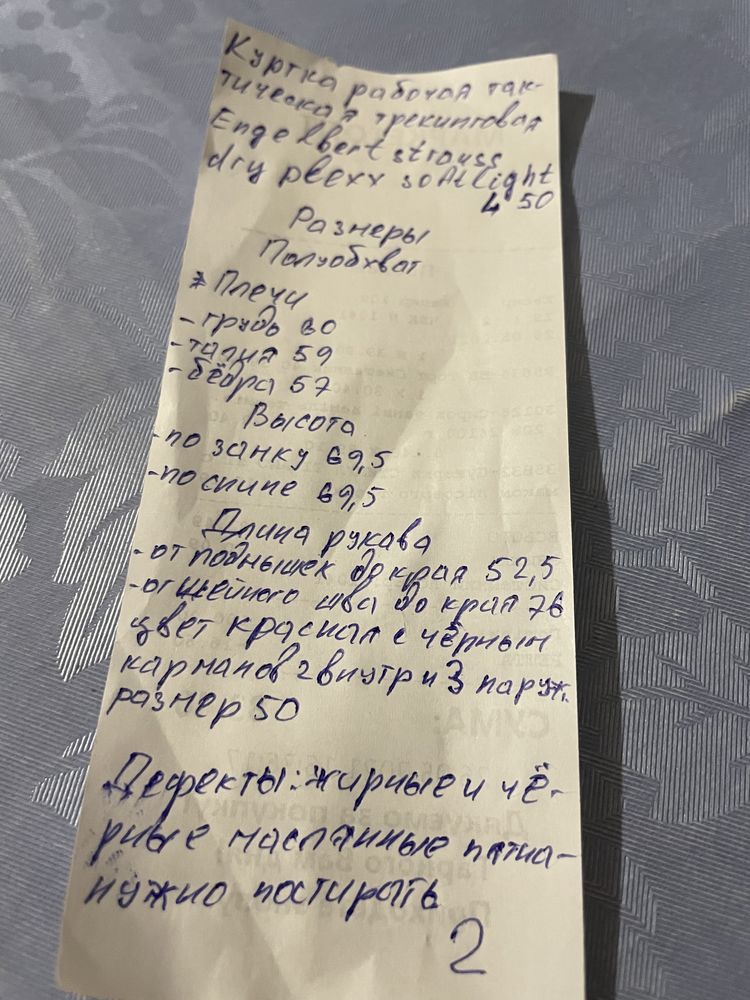 Куртка рабочая так-
тическая трекинговая
Engelbert strauss
dry plexx softlight
L 50
Размеры
Полуобхват
* Плечи
- грудь 60
- талия 59
- бёдра 57
Высота
- по занку 69,5
- по спине 69,5
Длина рукава
- от подмышек до края 52,5
- от шейного шва до края 76
цвет красная с чёрным
карманов 2 внутри 3 наруж.
размер 50
Дефекты: жирные и чё-
рные маслянные пятна-
нужно постирать
2
СУМА:
Дякуємо за покупку!